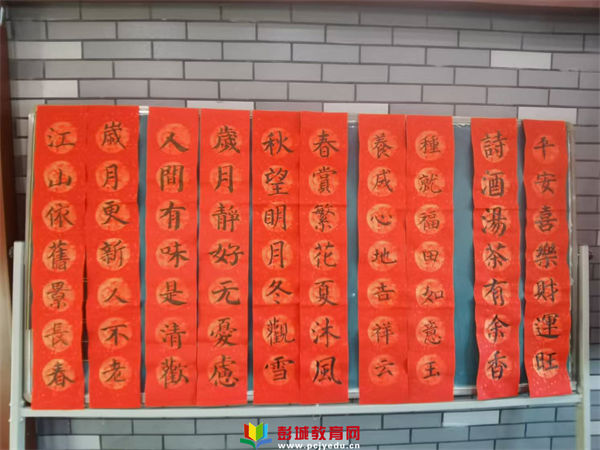 平安喜樂財運旺
詩酒湯茶有余香
種就福田如意玉
養成心地吉祥云
春賞繁花夏沐風
秋望明月冬觀雪
歲月靜好无憂慮
人間有味是清歡
歲月更新人不老
江山依舊景長春
彭城教育网
www.pcjyedu.cn